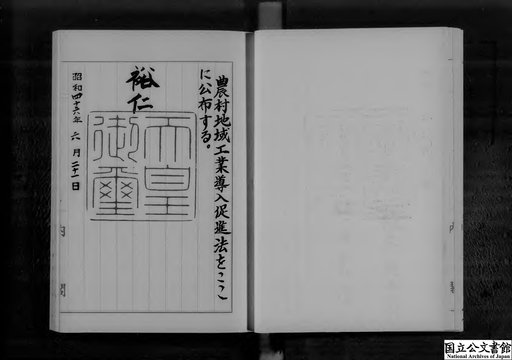 農村地域工業導入促進法をここ
に公布する。
裕仁
天皇
御璽
昭和四十六年六月二十一日
内閣
国立公文書館
National Archives of Japan